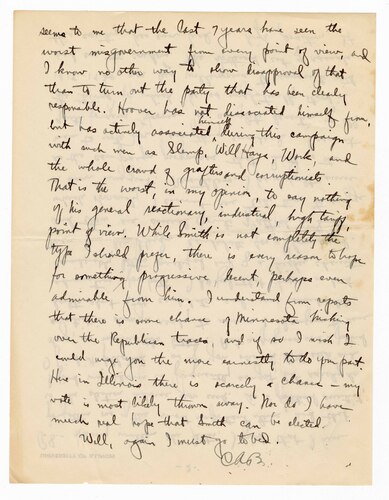 seems to me that the last 7 years have seen the
worst misgovernment from every point of view, and
I know no other way to show disapproval of that
than to turn out the party that has been clearly
responsible. Hoover has not dissociated himself from,
but has actively associated himself, during this campaign
with such men as Slemp, Will Hays, Work, and
the whole crowd of grafters and corruptionists
That is the worst, in my opinion, to say nothing
of his general reactionary, industrial, high tariff,
point of view. While Smith is not completely the
type I should prefer, there is every reason to hope
for something progressive, decent, perhaps even
admirable from him. I understand from reports
that there is some chance of Minnesota kicking
over the Republican traces, and if so I wish I
could urge you the more earnestly to do your part.
Here in Illinois there is scarcely a chance – my
vote is most likely thrown away. Nor do I have
much real hope that Smith can be elected.
Well, again I must go to bed.
C.A.B.